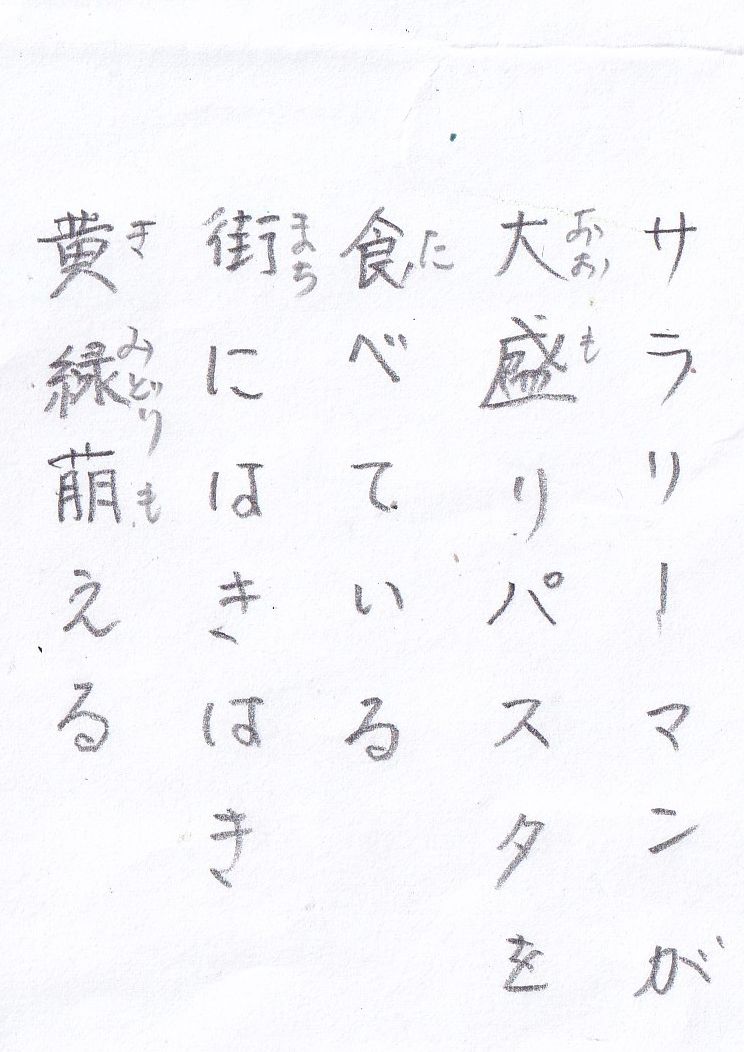 サラリーマンが
大盛りパスタを
おおも
食べている
に
街にはきはき
まち
黄緑萌える
きみどりも